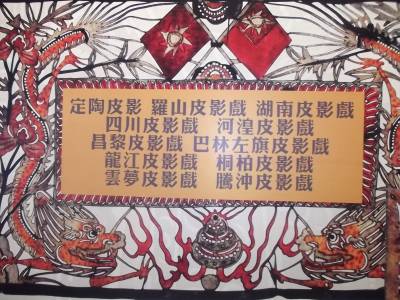 定陶皮影 羅山皮影戲 湖南皮影戲
四川皮影戲 河湟皮影戲
昌黎皮影戲 巴林左旗皮影戲
龍江皮影戲 桐柏皮影戲
雲夢皮影戲 騰沖皮影戲